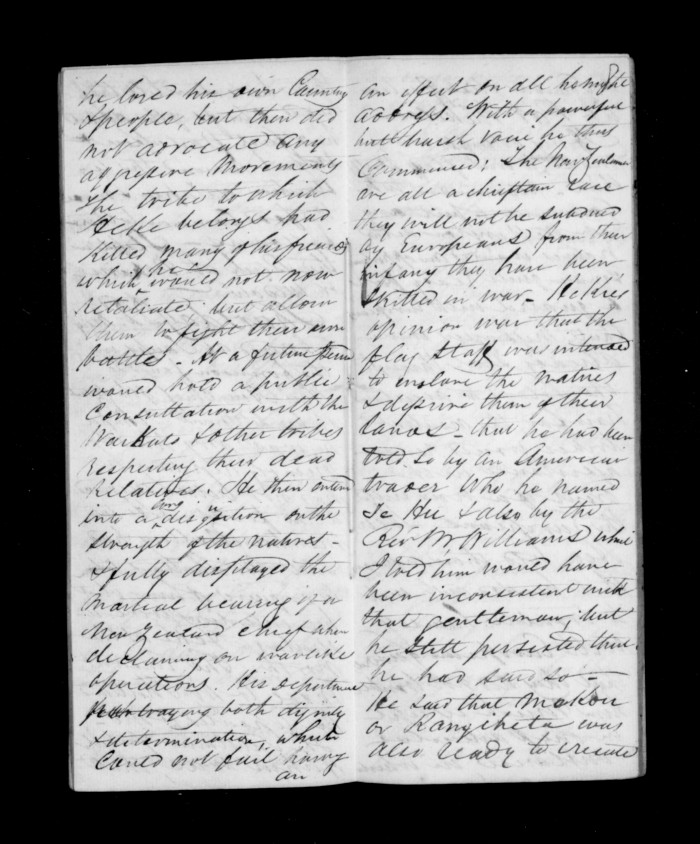 he loved his own Country
& people, but then did
not advocate any
aggressive movements
The tribe to which
Heke belongs had
killed many of his friends
which he would not now
retaliate but allow
them to fight their own
battles - At a future time
would hold a public
Consultation with the
Waikato & other tribes
respecting their dead
relatives. He then entered
into a long disquisition on the
strength of the natives -
& fully displayed the
martial bearing of a
New Zealand chief when
declaiming on warlike
operations. His deportment
both dignity
& determination, which
could not fail having
an
an effect on all he might
address. With a powerful
but harsh voice he thus
Commenced; The New Zealanders
are all a chieftain race
they will not be subdued
by Europeans from their
infancy they have been
skilled in war - Heke's
opinion was that the
flag staff was intended
to enslave the natives
& deprive them of their
lands - that he had been
told so by an American
trader who he named
& also by the
Revd W. Williams which
I told him would have
been inconsistent with
that gentleman; but
he still persisted that
he had said so -
He said that
or Rangiheta was
also ready to create